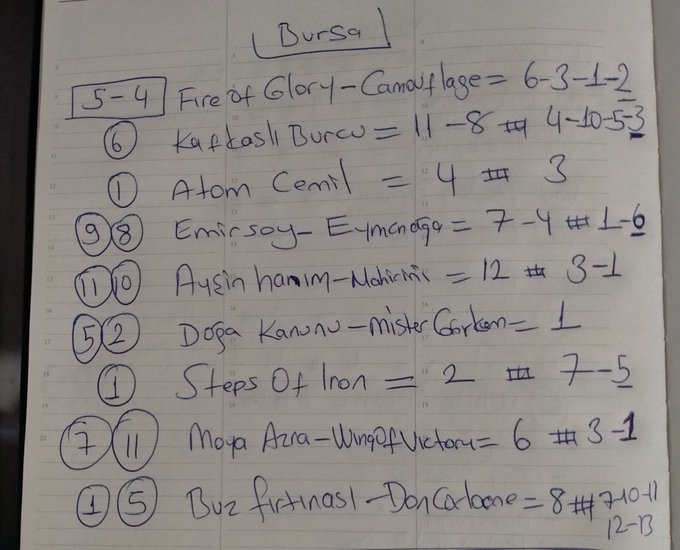 Bursa
5-4 Fire of Glory-Camouflage= 6-3-1-2
6 Kafkaslı Burcu = 11-8 # 4-10-5-3
1 Atom Cemil = 4 # 3
9 8 Emirsoy- Eymenağa= 7-4 # 1-6
11 10 Ayşin hanım- = 12 # 3-1
5 2 Doğa Kanunu-mister Görkem= 1
1 Steps Of Iron = 2 # 7-5
7 11 Moya Azra-WingOfVictory= 6 # 3-1
1 5 Buz fırtınası-DonCorleone=8#7-10-11
12-13